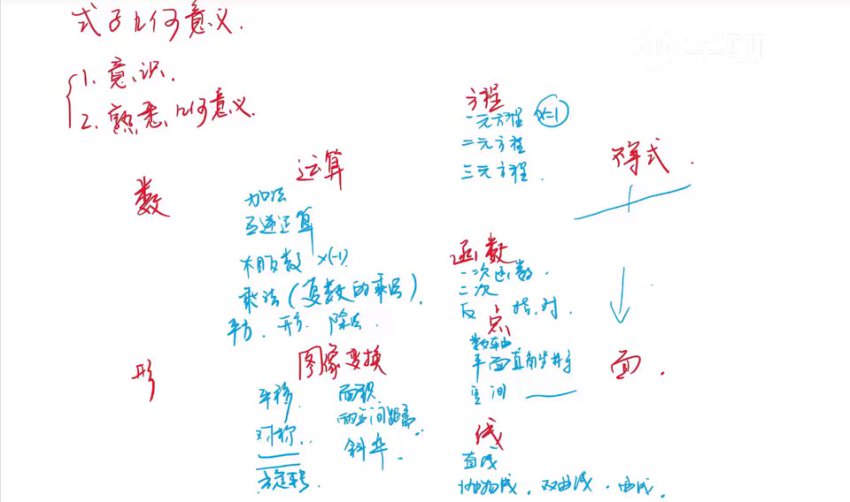 式子几何意义.
1. 意识.
2. 熟悉几何意义.
数
运算
加法
互逆运算
相反数 ×(-1)
乘法(复数的乘法).
平方. 开方. 除法.
方程
一元方程 x=1
二元方程
三元方程.
不等式.
函数
一次函数.
二次
反 指.对
形
图像变换
平移.
对称.
旋转
面积.
两点间距离.
斜率.
点
数轴
平面直角坐标系
空间
线
直线
抛物线. 双曲线. 曲线.
面.